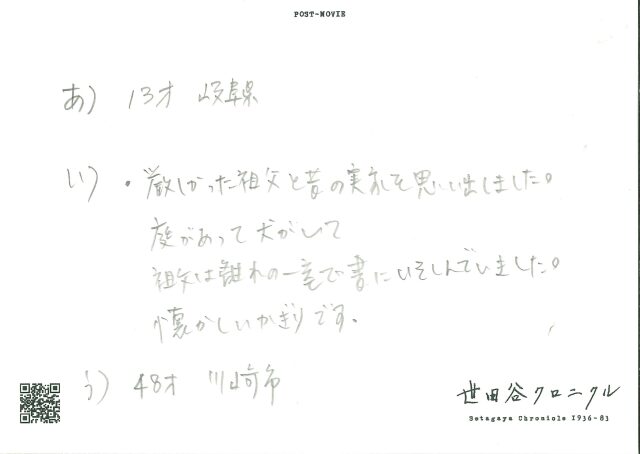 POST-MOVIE
あ) 13才 岐阜県
い) ・厳しかった祖父と昔の実家を思い出しました。
庭があって犬がいて
祖父は離れの一室で書にいそしんでいました。
懐かしいかぎりです。
う) 48才 川崎市
世田谷クロニクル
Setagaya Chronicle 1936-83